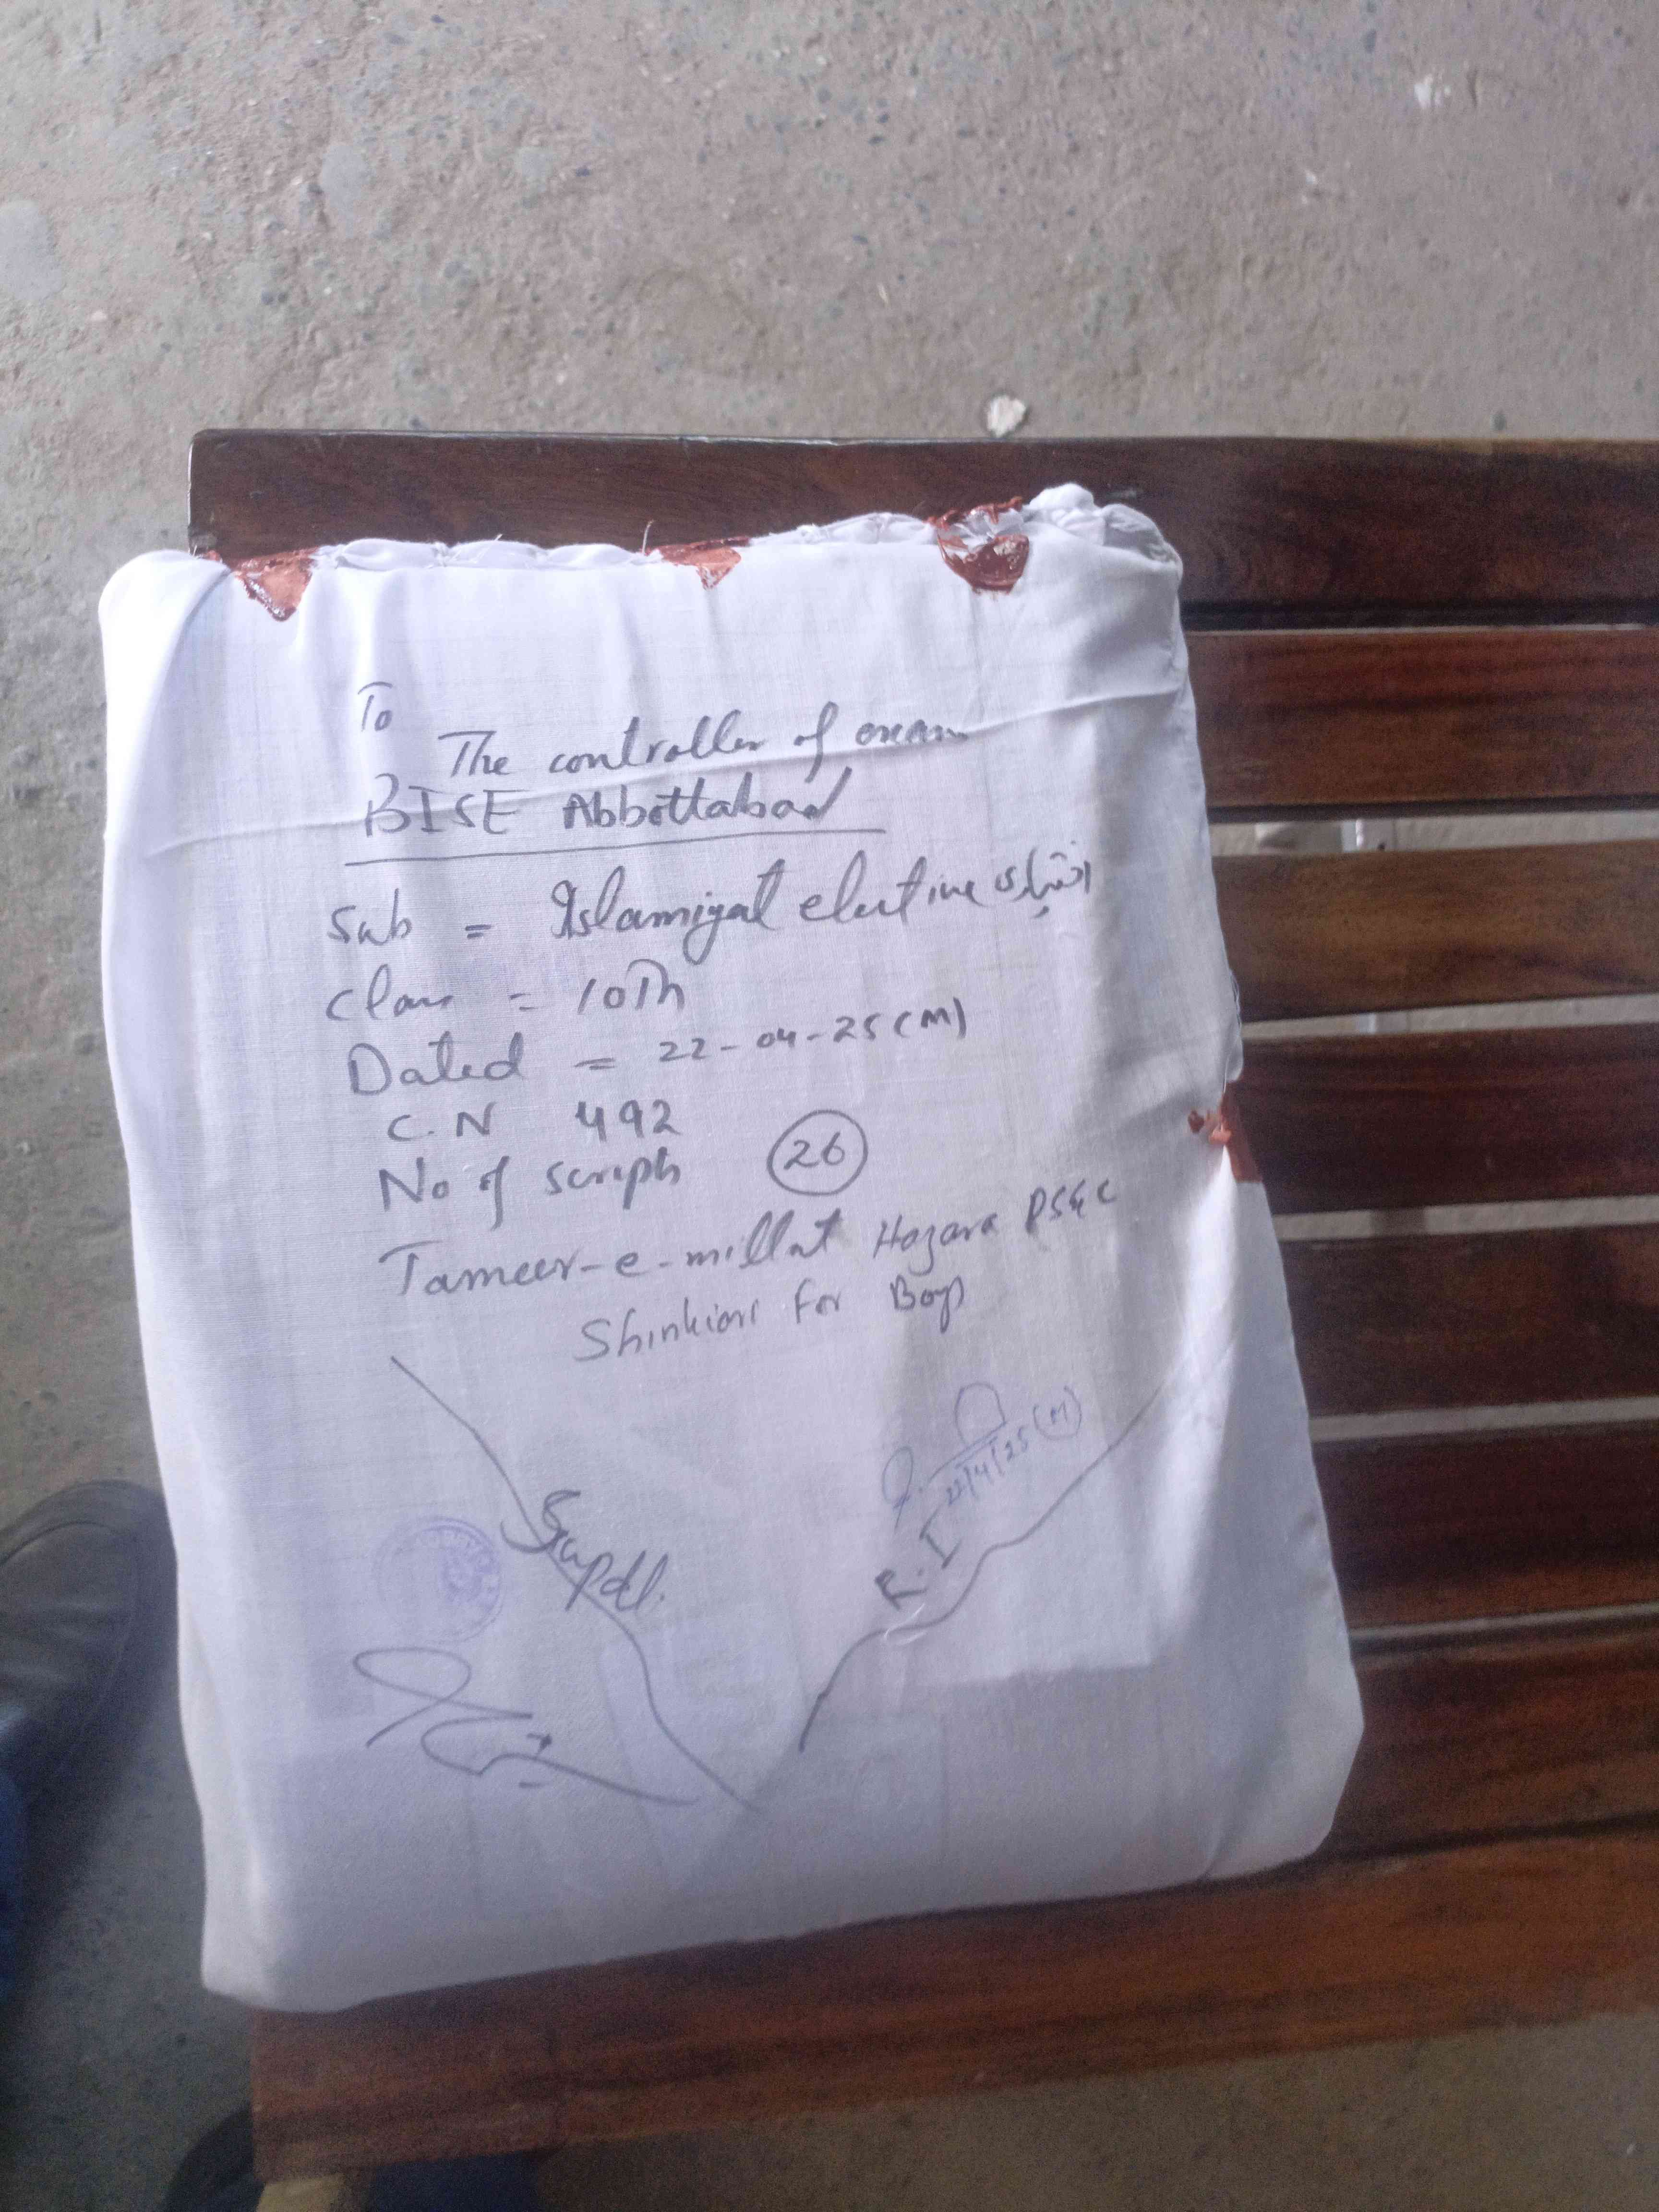 To
The controller of exam
BISE Abbottabad
Sub = Islamiyat elective اختیاری
Class = 10Th
Dated = 22-04-25 (M)
C.N 492
No of scripts 26
Tameer-e-millat Hazara PS&C
Shinkiari for Boys
22/4/25 (M)
Supdt.
R.I